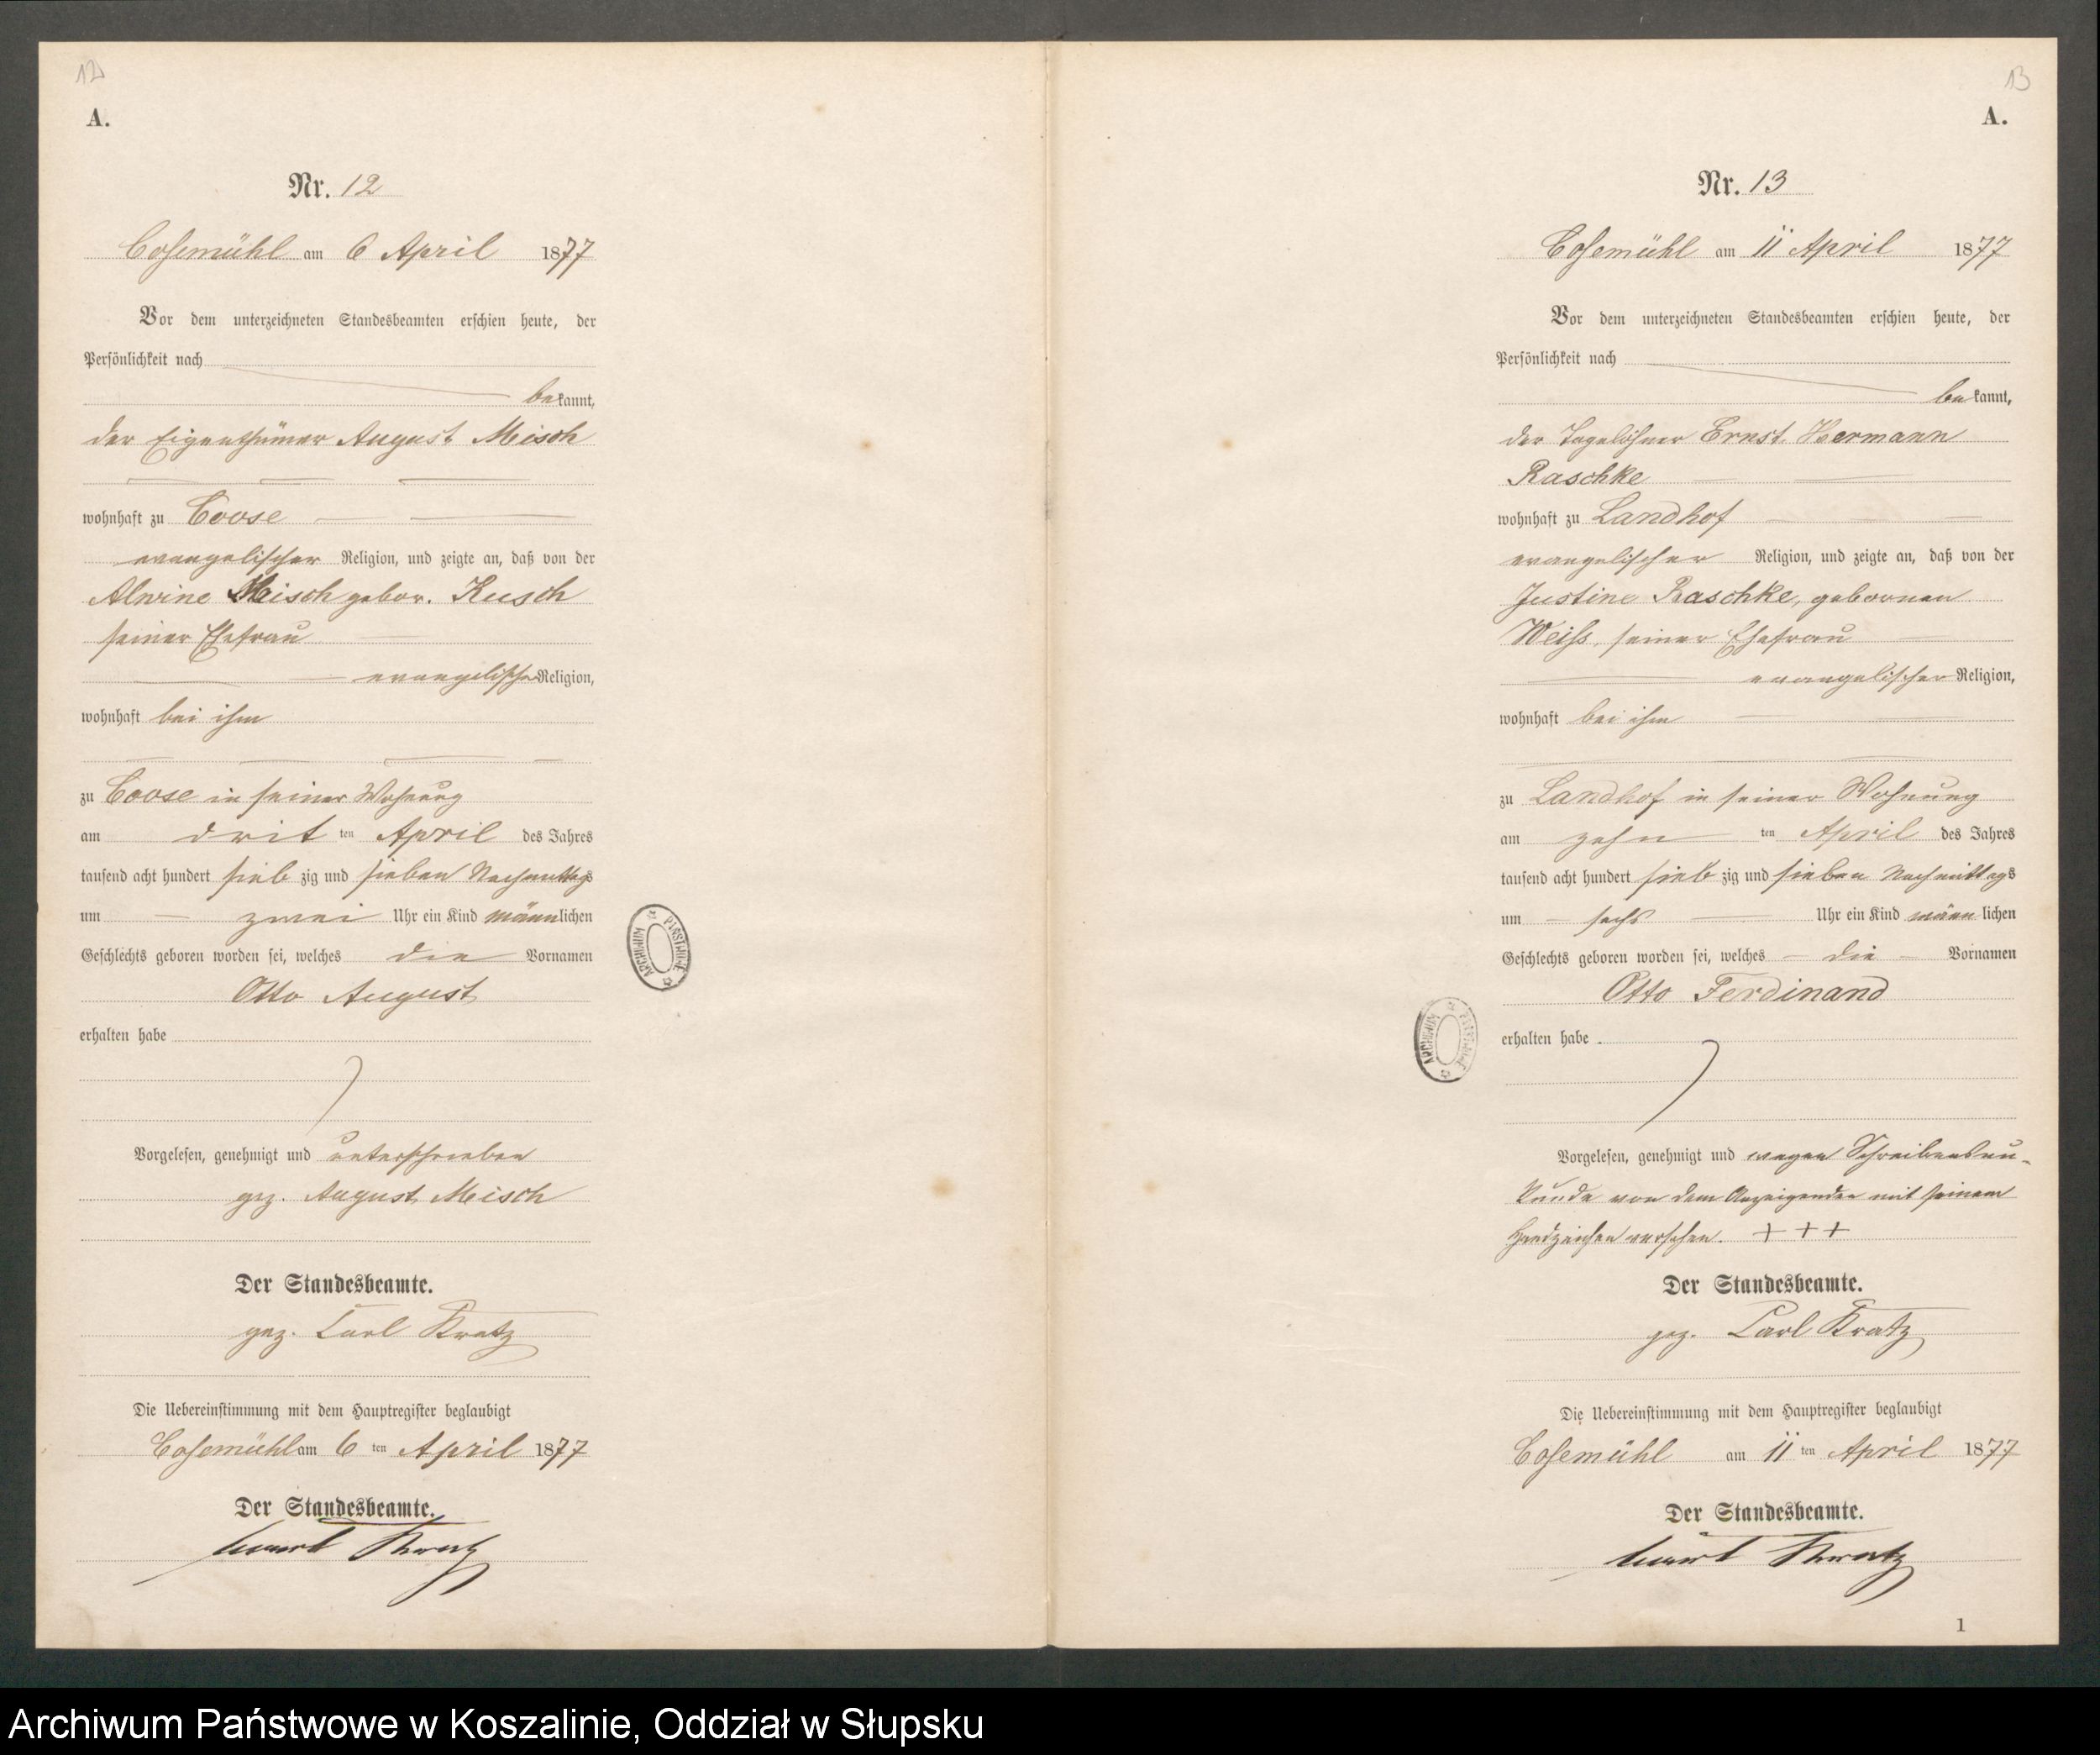 12
A.
Nr. 12
Cosemühl am 6 April 1877
Vor dem unterzeichneten Standesbeamten erschien heute, der
Persönlichkeit nach
bekannt,
der Eigenthümer August Misch
wohnhaft zu Coose
evangelischer Religion, und zeigte an, daß von der
Alwine Misch gebor. Kusch
seiner Ehefrau
evangelischer Religion,
wohnhaft bei ihm
zu Coose in seiner Wohnung
am dritten April des Jahres
tausend acht hundert siebzig und sieben Nachmittags
um zwei Uhr ein Kind männlichen
Geschlechts geboren worden sei, welches die Vornamen
Otto August
erhalten habe
Vorgelesen, genehmigt und unterschrieben
gez. August Misch
Der Standesbeamte.
gez. Carl Kratz
Die Uebereinstimmung mit dem Hauptregister beglaubigt
Cosemühl am 6ten April 1877
Der Standesbeamte.
Kratz
ARCHIWUM PAŃSTWOWE
13
A.
Nr. 13
Cosemühl am 11 April 1877
Vor dem unterzeichneten Standesbeamten erschien heute, der
Persönlichkeit nach
bekannt,
der Tagelöhner Ernst Hermann
Raschke
wohnhaft zu Landhof
evangelischer Religion, und zeigte an, daß von der
Justine Raschke, gebornen
Weiss, seiner Ehefrau
evangelischer Religion,
wohnhaft bei ihm
zu Landhof in seiner Wohnung
am zehnten April des Jahres
tausend acht hundert siebzig und sieben Nachmittags
um sechs Uhr ein Kind männlichen
Geschlechts geboren worden sei, welches die Vornamen
Otto Ferdinand
erhalten habe.
Vorgelesen, genehmigt und wegen Schreibensun-
kunde von dem Anzeigenden mit seinem
Handzeichen versehen. +++
Der Standesbeamte.
gez. Carl Kratz
Die Uebereinstimmung mit dem Hauptregister beglaubigt
Cosemühl am 11ten April 1877
Der Standesbeamte.
Kratz
1
ARCHIWUM PAŃSTWOWE
Archiwum Państwowe w Koszalinie, Oddział w Słupsku